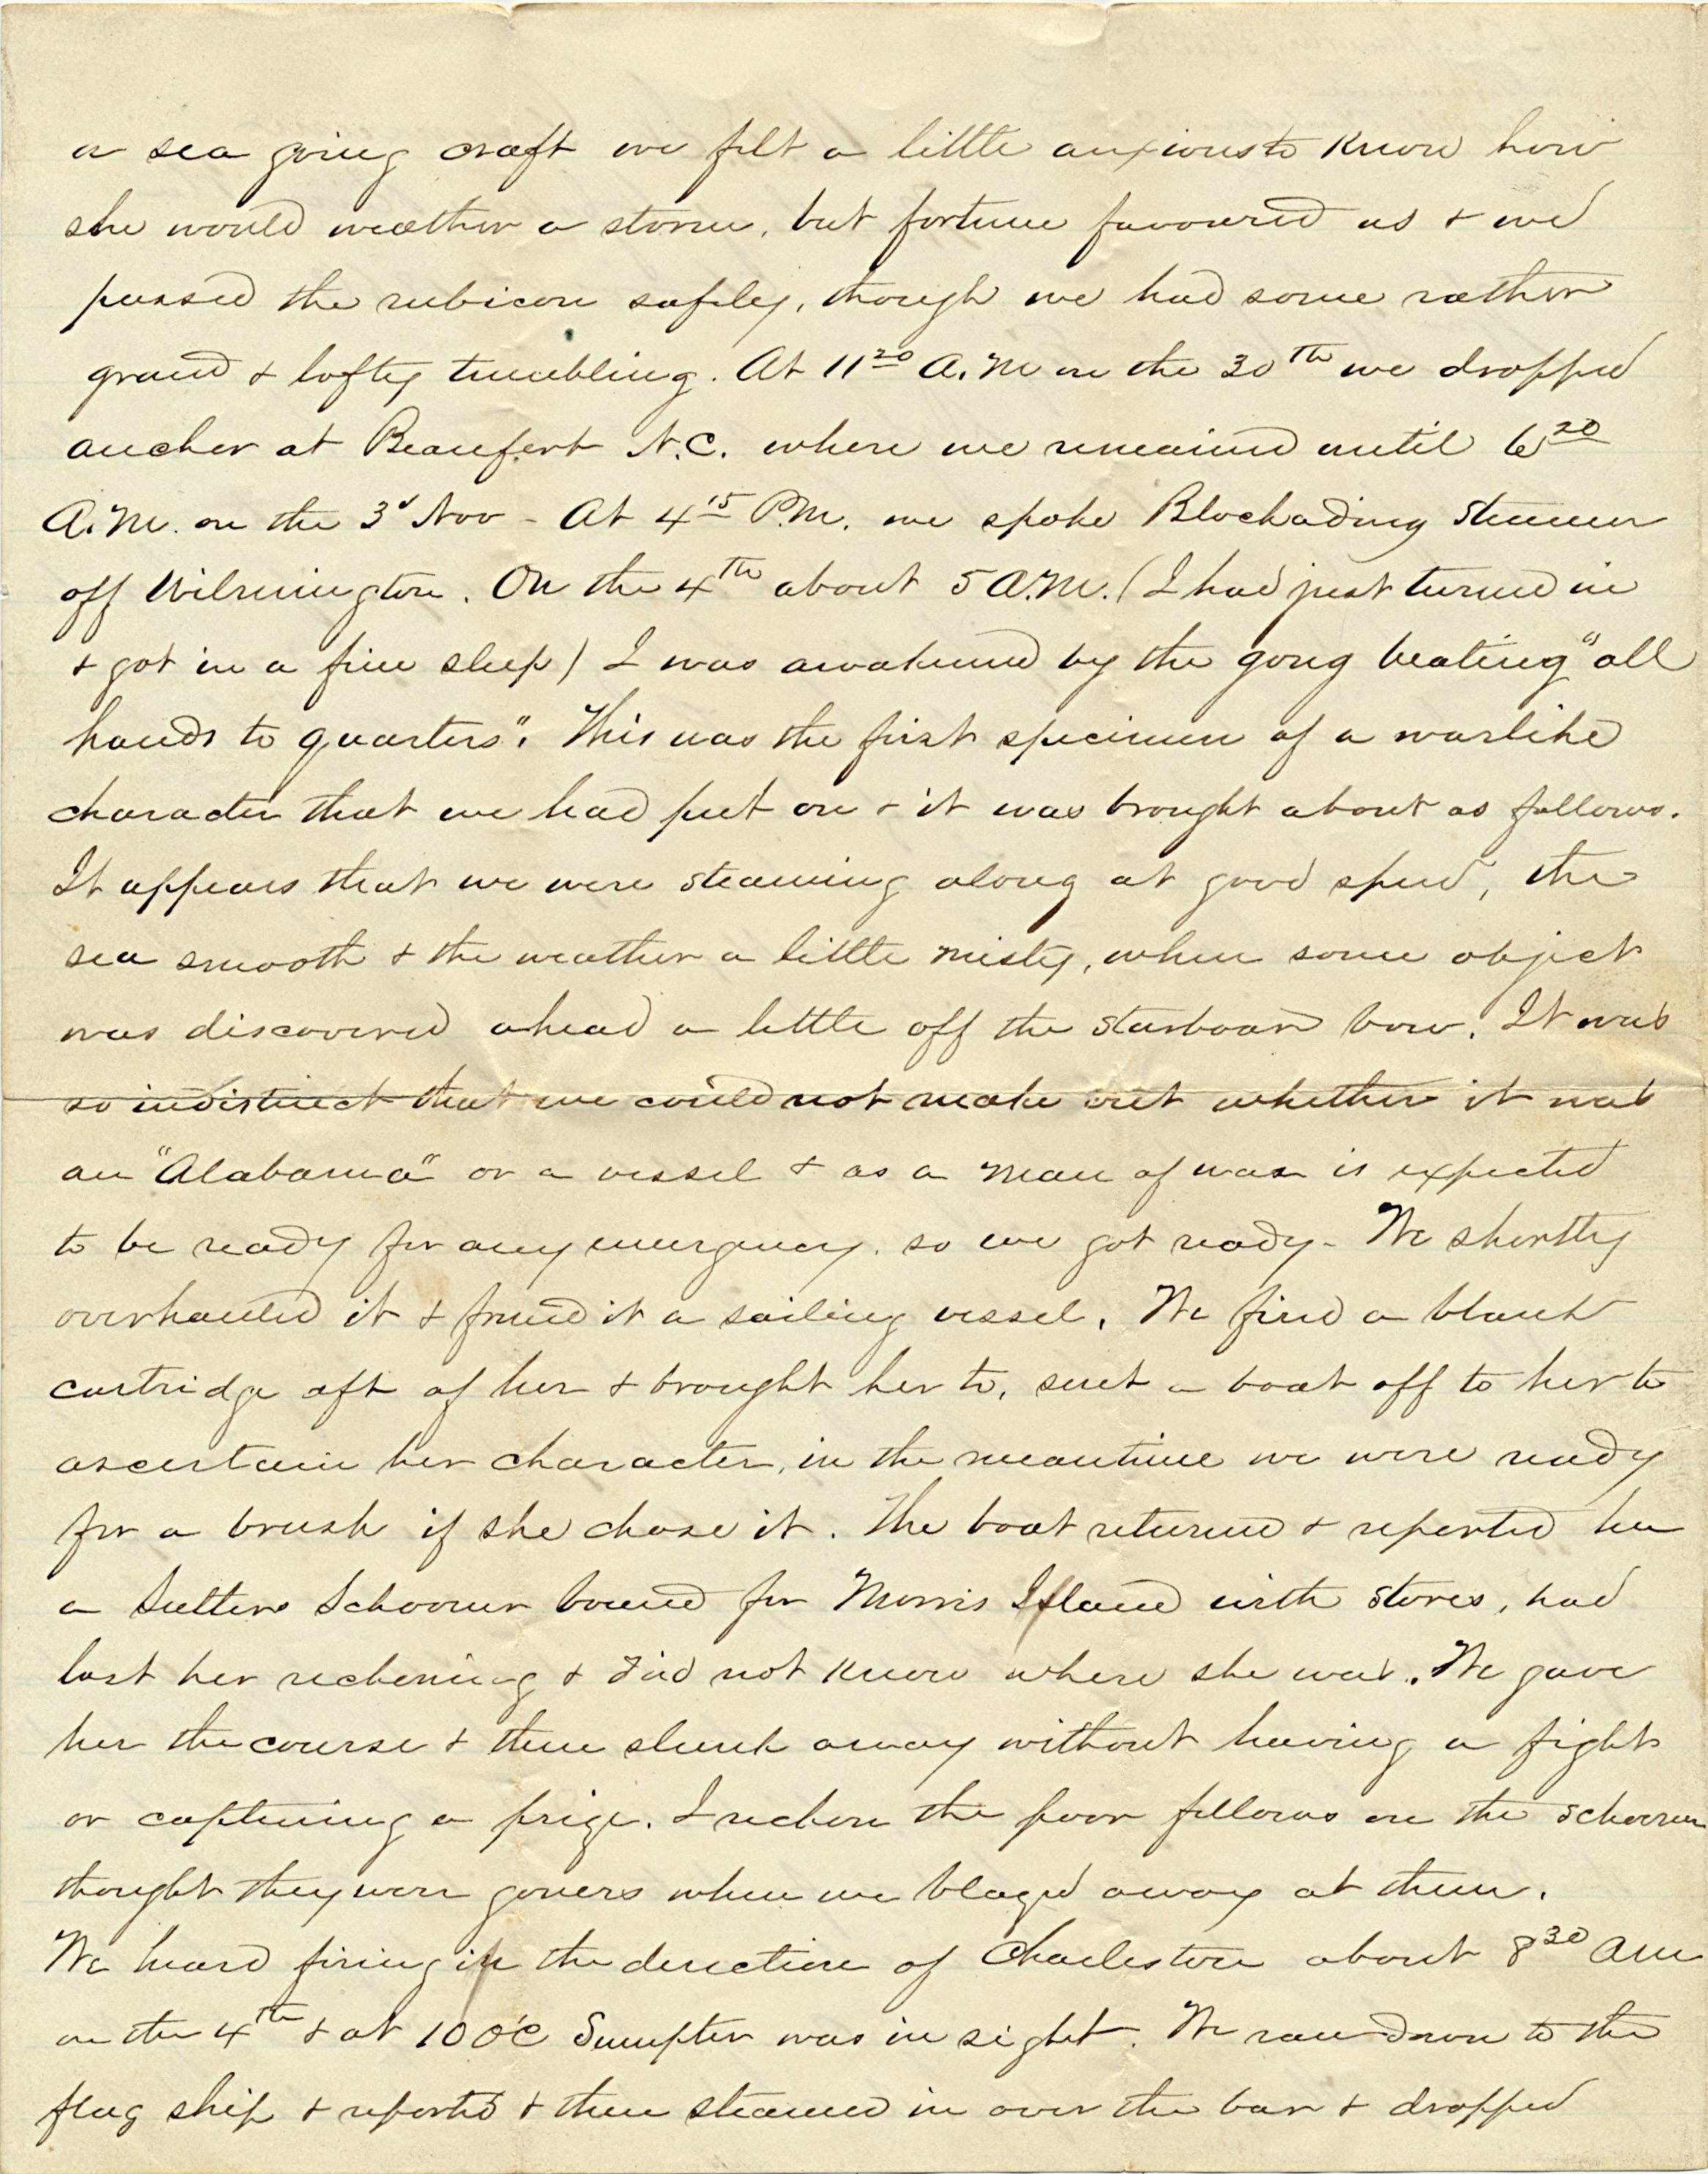 a sea going craft we felt a little anxious to know how
she would weather a storm, but fortune favoured us & we
passed the rubicon safely, though we had some rather
grand & lofty tumbling. At 11 20 A.M on the 30th we dropped
ancher at Beaufert N.C. where we remained until 6 20
A.M. on the 3d Nov - At 4 15 P.M. we spoke Blockading Steamer
off Wilmington. On the 4th about 5 A.M. (I had just turned in
& got in a fine sleep) I was awakened by the gong beating "all
hands to quarters". This was the first specimen of a warlike
character that we had put on & it was brought about as follows.
It appears that we were steaming along at good speed, the
sea smooth & the weather a little misty, when some object
was discovered ahead a little off the starboard bow. It was
so indistinct that we could not make out whether it was
an "Alabama" or a vessel & as a man of war is expected
to be ready for any emergency. so we got ready - We shortly
overhauled it & found it a sailing vessel. We fired a blank
cartridge aft of her & brought her to, sent a boat off to her to
ascertain her character, in the meantime we were ready
for a brush if she chose it. The boat returned & reported her
a Sutlers Schooner bound for Morris Island with stores, had
lost her reckoning & did not know where she was. We gave
her the course & then slunk away without having a fight
or captuing a prize. I reckon the poor fellows on the schooner
thought they were goners when we blazed away at them.
We heard firing in the direction of Charleston about 8 30 am
on the 4th & at 10 o'c Sumpter was in sight. We ran down to the
flag ship & reported & then steamed in over the bar & dropped